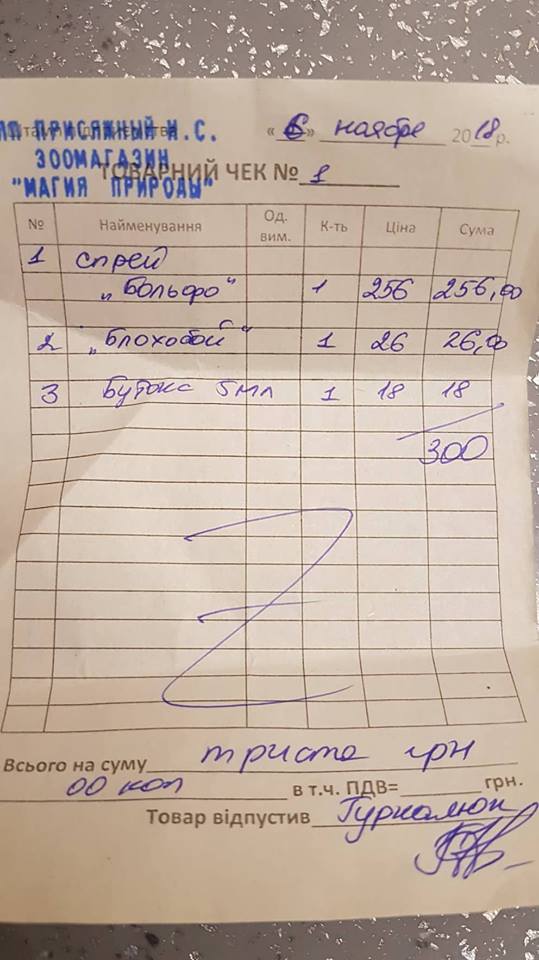 ПРИСЯЖНЫЙ И.С.
ЗООМАГАЗИН
"МАГИЯ ПРИРОДЫ"
« 6 » ноября 2018 р.
ТОВАРНИЙ ЧЕК № 1
№ Найменування Од. вим. К-ть Ціна Сума
1 спрей
„Больфо“ 1 256 256,00
2 „Блохобой“ 1 26 26,00
3 Бутокс 5мл 1 18 18
300
Всього на суму триста грн
00 коп в т.ч. ПДВ= грн.
Товар відпустив